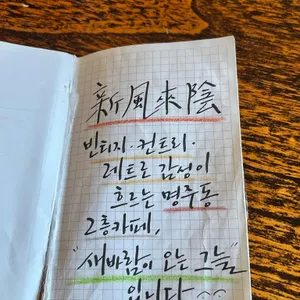 新風來陰
빈티지·컨트리·
레트로 감성이
흐르는 명주동
2층카페,
"새바람이 오는 그늘"
입니다